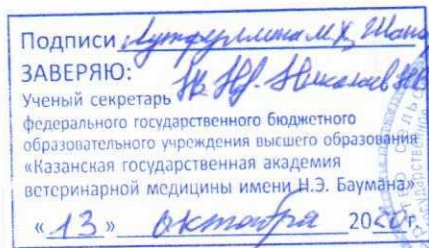 Подписи Лутфуллина М.Х., Шанг
ЗАВЕРЯЮ:
Ученый секретарь Николаев Н.В.
федерального государственного бюджетного
образовательного учреждения высшего образования
«Казанская государственная академия
ветеринарной медицины имени Н.Э. Баумана»
«13» октября 2020г.